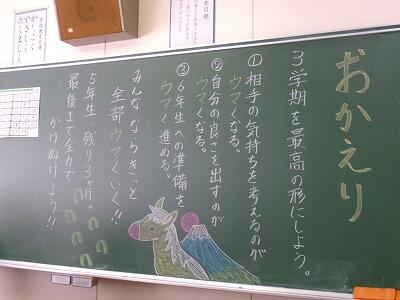 おかえり
3学期を最高の形にしよう。
①相手の気持ちを考えるのが
ウマくなる。
②自分の良さを出すのが
ウマくなる。
③6年生への準備を
ウマく進める。
みんなならきっと
全部ウマくいく!!
5年生、残り3ヶ月。
最後まで全力で
かけぬけよう!!